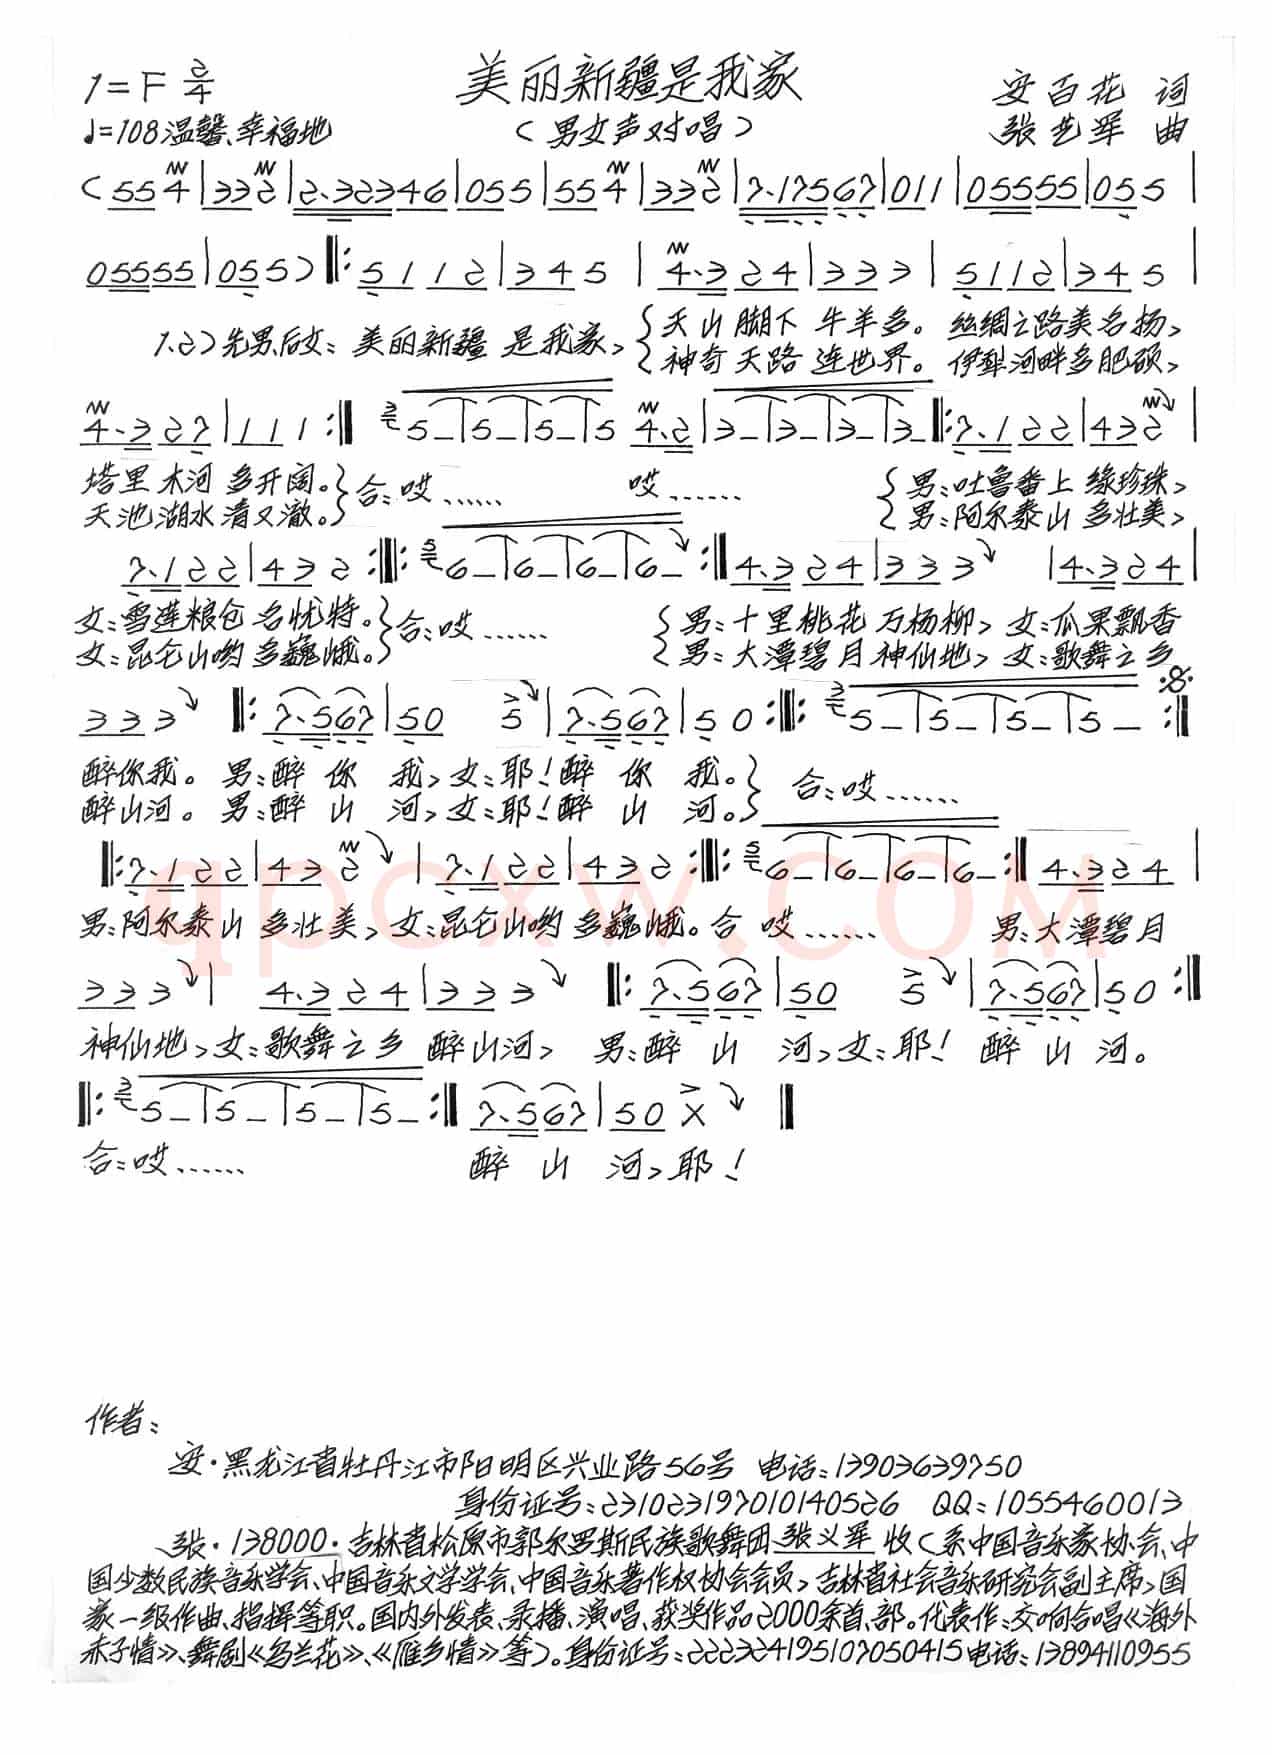 1=F 2/4 美丽新疆是我家 安百花 词
♩=108 温馨、幸福地 (男女声对唱) 张艺军 曲
(55 4|33 2|2.32346|055|55 4|33 2|7.17567|011|05555|055|
05555|055):‖: 5112|345|4.324|333|5112|345|
1.2)先男后女: 美丽新疆 是我家, {天山脚下 牛羊多。 丝绸之路美名扬,
{神奇天路 连世界。 伊犁河畔多肥硕,
4.327|111:‖ 5_|5_|5_|5 4.2|3_|3_|3_|3_‖:7.122|432|
塔里木河 多开阔。}合:哎…… 哎…… {男:吐鲁番上缘珍珠,
天池湖水清又澈。} {男:阿尔泰山 多壮美,
7.122|432:‖: 6_|6_|6_|6_:‖4.324|333 |4.324|
女:雪莲粮仓 名优特。}合:哎…… {男:十里桃花 万杨柳, 女:瓜果飘香
女:昆仑山哟 多巍峨。} {男:大潭碧月 神仙地, 女:歌舞之乡
333 ‖:7.567|50 5|7.567|50:‖: 5_|5_|5_|5_:‖
醉你我。 男:醉 你 我, 女:耶!醉 你 我。} 合:哎……
醉山河。 男:醉 山 河, 女:耶!醉 山 河。}
‖:7.122|432 |7.122|432:‖: 6_|6_|6_|6_:‖4.324|
男:阿尔泰山 多壮美, 女:昆仑山哟 多巍峨。合 哎…… 男:大潭碧月
333 | 4.324|333 ‖:7.567|50 5 |7.567|50:‖
神仙地, 女:歌舞之乡 醉山河, 男:醉 山 河, 女:耶! 醉 山 河。
‖: 5_|5_|5_|5_:‖7.567|50 X ‖
合:哎…… 醉 山 河, 耶!
qpcxw.com
作者:
安·黑龙江省牡丹江市阳明区兴业路56号 电话:13903639750
身份证号:231023197010140526 QQ:1055460013
张·138000·吉林省松原市郭尔罗斯民族歌舞团张义军 收(系中国音乐家协会、中
国少数民族音乐学会、中国音乐文学学会、中国音乐著作权协会会员,吉林省社会音乐研究会副主席,国
家一级作曲、指挥等职。国内外发表、录播、演唱、获奖作品2000余首、部。代表作:交响合唱《海外
赤子情》、舞剧《乌兰花》、《雁乡情》等)。身份证号:222324195107050415电话:13894110955